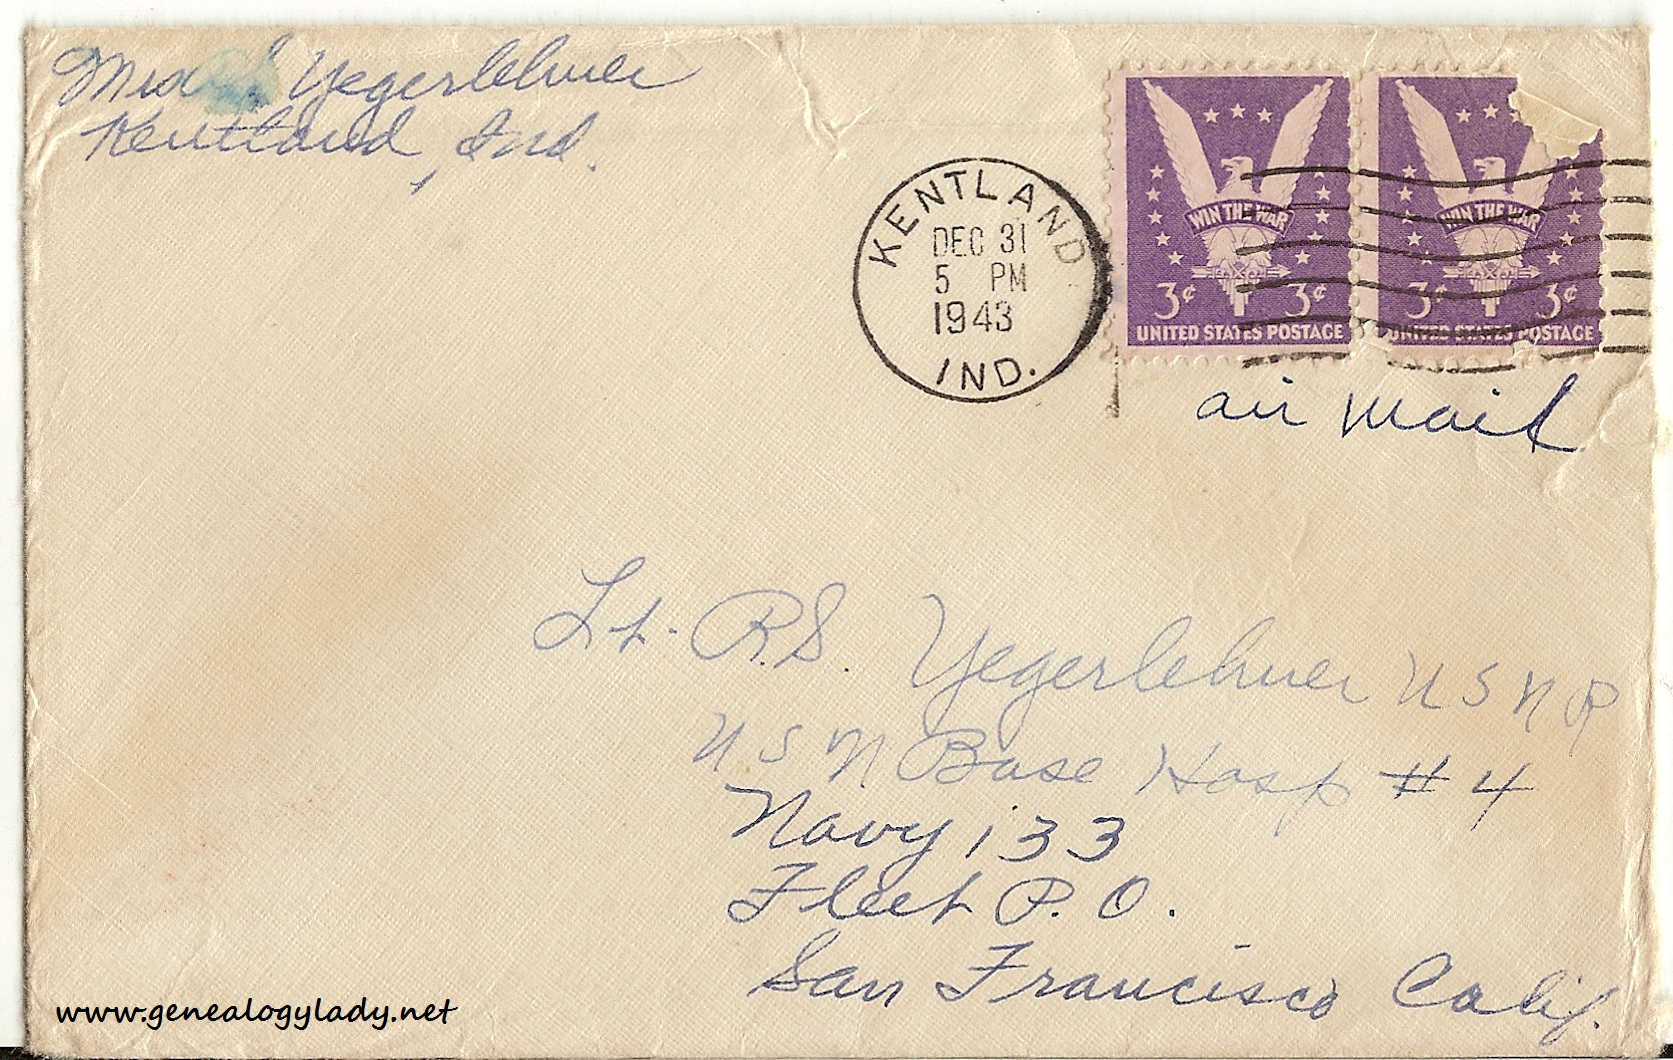 Mrs Yegerlehner
Kentland, Ind.
KENTLAND
DEC 31
5 PM
1943
IND.
WIN THE WAR
3¢ 3¢
UNITED STATES POSTAGE
WIN THE WAR
3¢ 3¢
UNITED STATES POSTAGE
air mail
Lt. R.S. Yegerlehner USNR
USN Base Hosp #4
Navy 133
Fleet P.O.
San Francisco Calif.
www.genealogylady.net